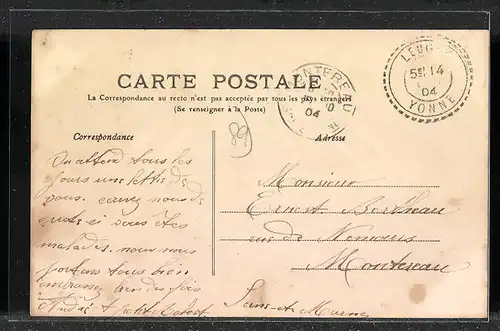 CARTE POSTALE
La Correspondance au recto n'est pas acceptée par tous les pays étrangers
(Se renseigner à la Poste)
Correspondance
Adresse
LEUG
5E 14
04
YONNE
MONTEREAU
04
89
On attend tous les
jours une lettre de
vous. ecrivez nous de
suite si vous êtes
malades. nous nous
portons tous bien
embrassez bien des fois
André
Monsieur
Ernest Bertheau
rue de Nemours
Montereau
Seine et Marne